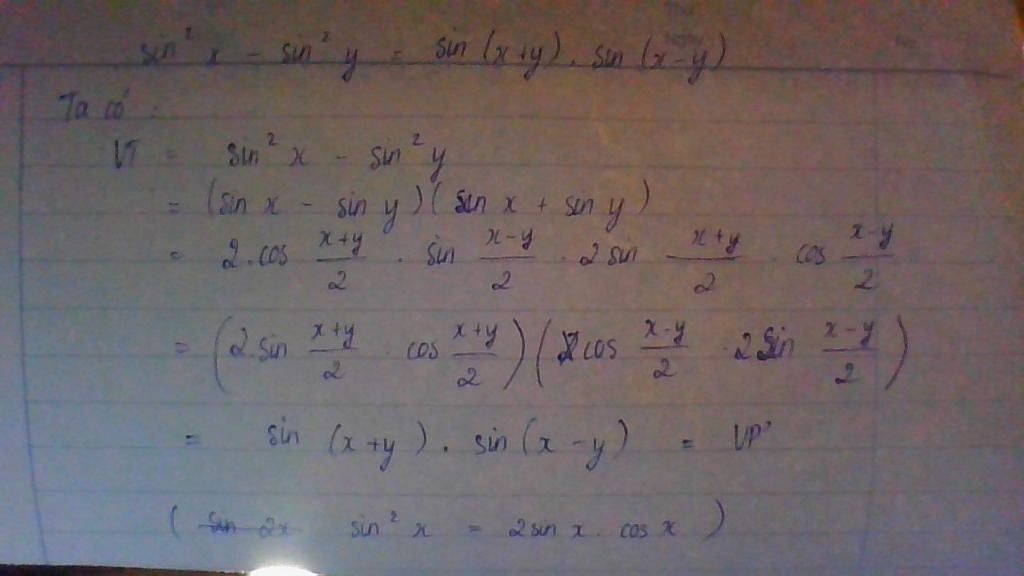 sin² x - sin² y = sin (x+y) . sin (x-y)
Ta có :
VT = sin² x - sin² y
= (sin x - sin y)(sin x + sin y)
= 2.cos (x+y)/2 . sin (x-y)/2 . 2 sin (x+y)/2 . cos (x-y)/2
= (2.sin (x+y)/2 . cos (x+y)/2)(cos (x-y)/2 . 2 sin (x-y)/2)
= sin (x+y) . sin (x-y) = VP
( sin 2x sin² x = 2 sin x . cos x )